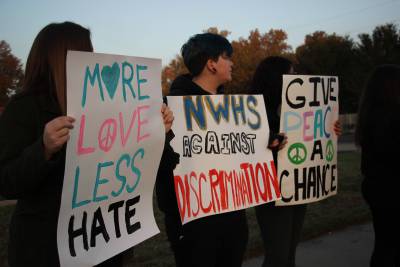 MORE
LOVE
LESS
HATE
NWHS
AGAINST
DISCRIMINATION
GIVE
PEACE
A
CHANCE